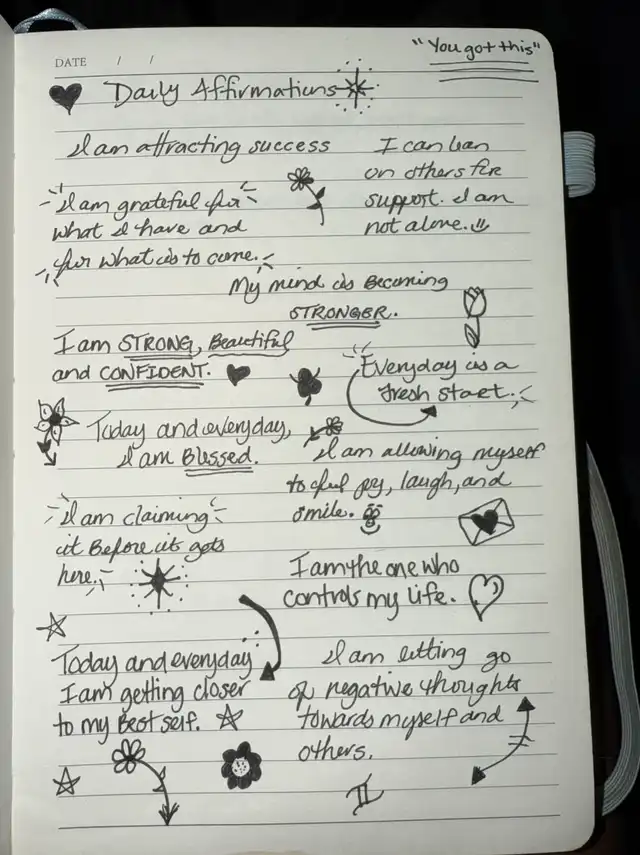 "You got this"
DATE / /
Daily Affirmations
I am attracting success
I can lean
on others for
support. I am
not alone.
I am grateful for
what I have and
for what is to come.
My mind is Becoming
STRONGER.
I am STRONG, Beautiful
and CONFIDENT.
Everyday is a
fresh start.
Today and everyday,
I am Blessed.
I am allowing myself
to feel joy, laugh, and
smile.
I am claiming
it Before it gets
here.
I am the one who
controls my life.
Today and everyday
I am getting closer
to my Best self.
I am letting go
of negative thoughts
towards myself and
others.